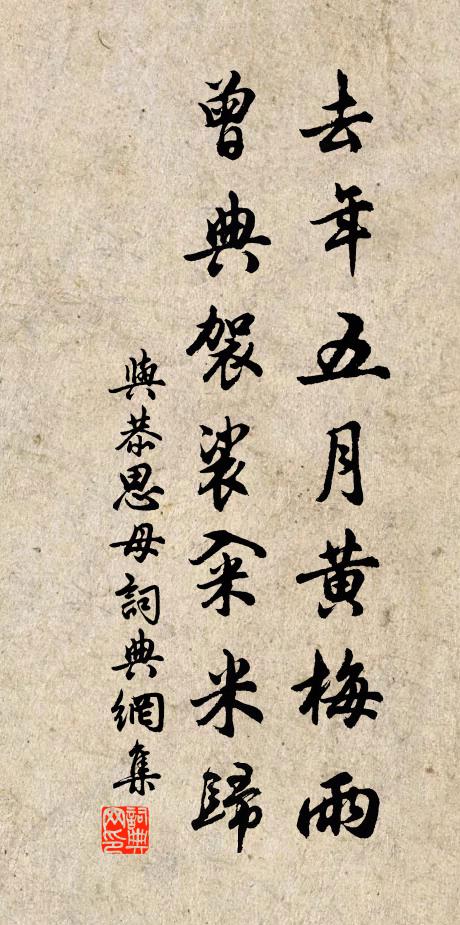 去年五月黃梅雨
曾典袈裟籴米歸
與恭思母詞典網集
詞典
网印